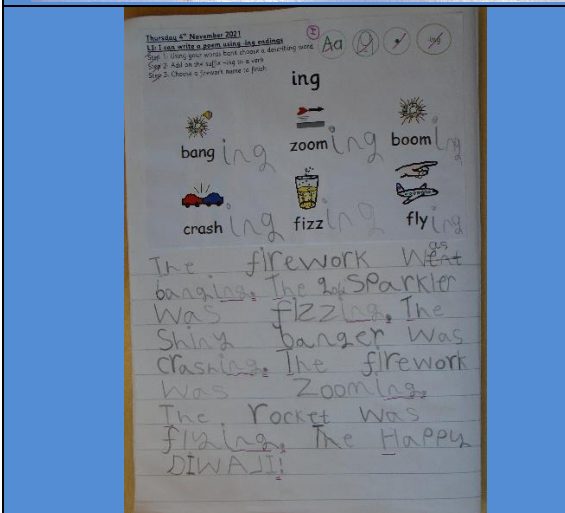 Thursday 4th November 2021
LI: I can write a poem using -ing endings
Step 1: Using your words bank choose a describing word
Step 2: Add on the suffix -ing to a verb
Step 3: Choose a firework name to finish
Aa
ing
banging zooming booming
crashing fizzing flying
The firework went was
banging. The SParkler
was fizzing. The
Shiny banger was
crashing. The firework
was zooming.
The rocket was
flying. The Happy
DIWALI!